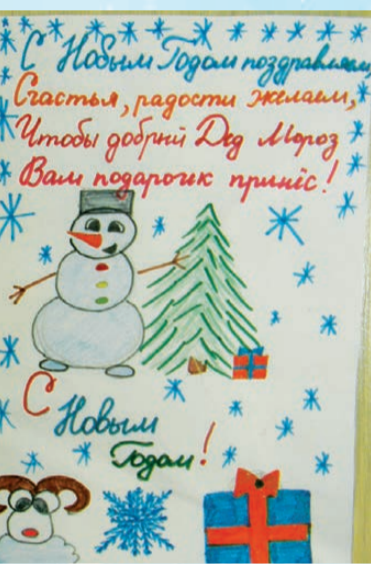 С Новым Годом поздравляем,
Счастья, радости желаем,
Чтобы добрый Дед Мороз
Вам подарочек принёс!
С Новым
Годом!